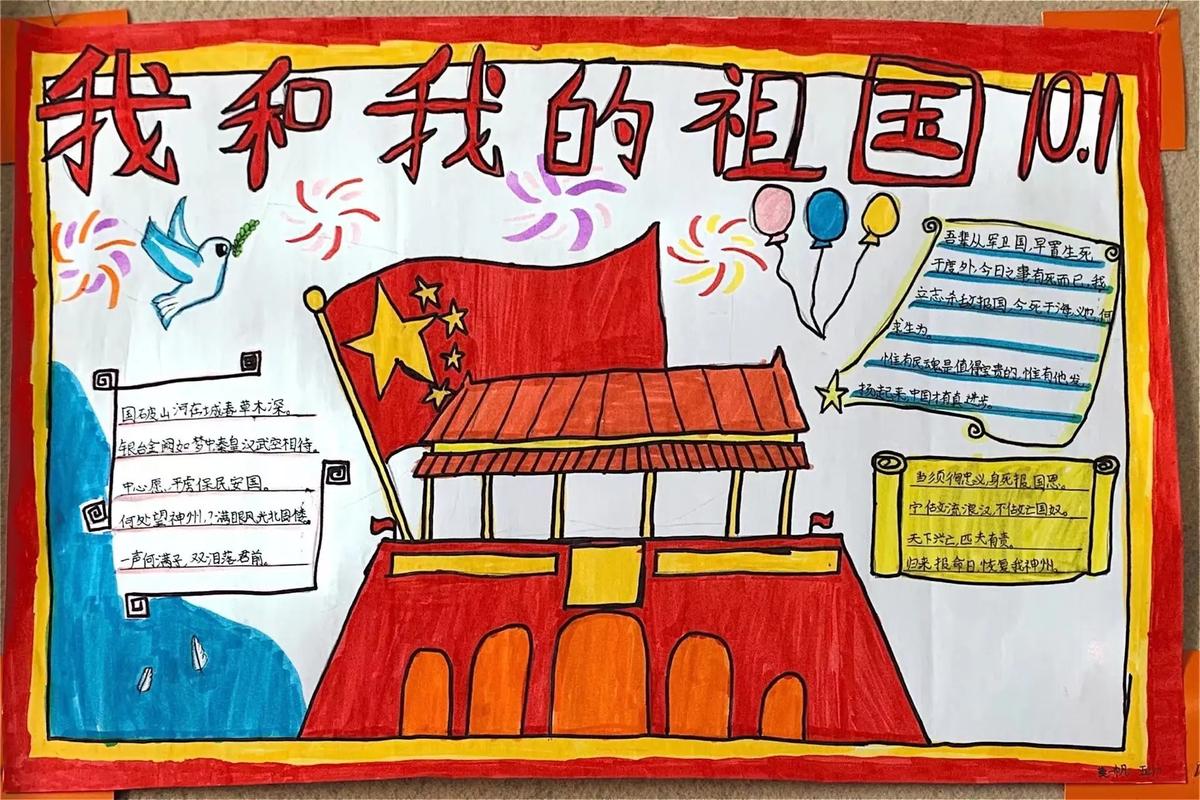 我和我的祖国10.1
国破山河在,城春草木深。
银台金阙如梦中,秦皇汉武空相待。
中心愿,平虏保民安国。
何处望神州,?满眼风光北固楼。
一声何满子,双泪落君前。
吾辈从军卫国,早置生死
于度外,今日之事有死而已,我
立志杀敌报国,今死于海,义也,何
求生为。
惟有民魂是值得宝贵的,惟有他发
扬起来,中国才有真进步。
当须徇忠义,身死报国恩。
宁佔文流浪汉,不佔文亡国奴。
天下兴亡,匹夫有责。
归来报命日,恢复我神州。